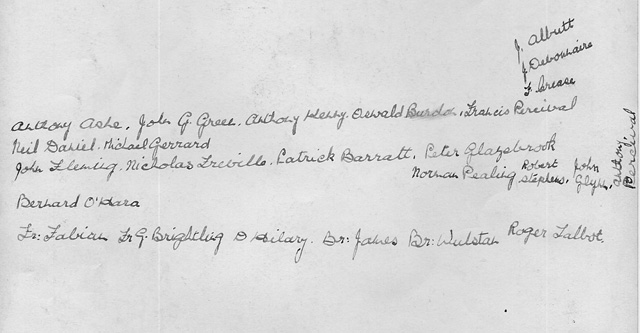 J. Albutt
J. Debonnaire
F. Crease
Anthony Ashe. John G. Green. Anthony Henry. Oswald Burdon. Francis Percival
Neil Daniel. Michael Gerrard
John Fleming. Nicholas Treville. Patrick Barratt. Peter Glazebrook
Norman Pealing Robert Stephens. John Glynn. Anthony Percival
Bernard O'Hara
Fr: Fabian Fr G. Brightling D Hilary. Br: James Br: Wulstan Roger Talbot.